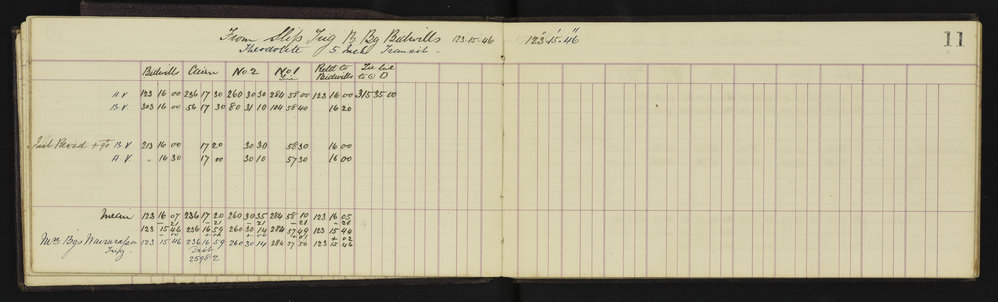 From Slip Trig B. Bg Bidwills 123-15-46 123°-15'-46" 11
Theodolite 5 Inch Transit -
Bidwills Cairn No 2 No 1 Retd to Bidwills Tie line to ⊙ D
A V 123 16 00 236 17 30 260 30 30 284 58 00 123 16 00 315 35 00
B V 303 16 00 56 17 30 80 31 10 104 58 40 16 20
+ 90° B V 213 16 00 17 20 30 30 58 30 16 00
A V " 16 30 17 00 30 10 57 30 16 00
Mean 123 16 07 236 17 20 260 30 35 284 58 10 123 16 05
- 21 - 21 - 21 - 21 - 21
123 15 46 236 16 59 260 30 14 284 57 49 123 15 44
+ 00 + 00 + 00 + 01 + 02
Mer Bgs Wairarapa Trig 123 15 46 236 16 59 260 30 14 284 57 50 123 15 46
Dist
2598.2